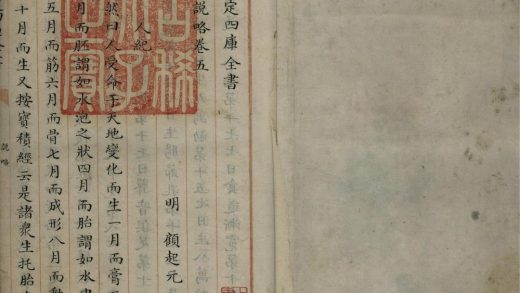 定四庫全書
說略卷五
明 顧起元
人紀
然曰人受命于天地變化而生一月而膏
月而胚謂如水池之狀四月而胎謂如水
五月而筋六月而骨七月而成形八月而動
十月而生又按寶積經云是諸衆生托胎
說略
古稀
天子